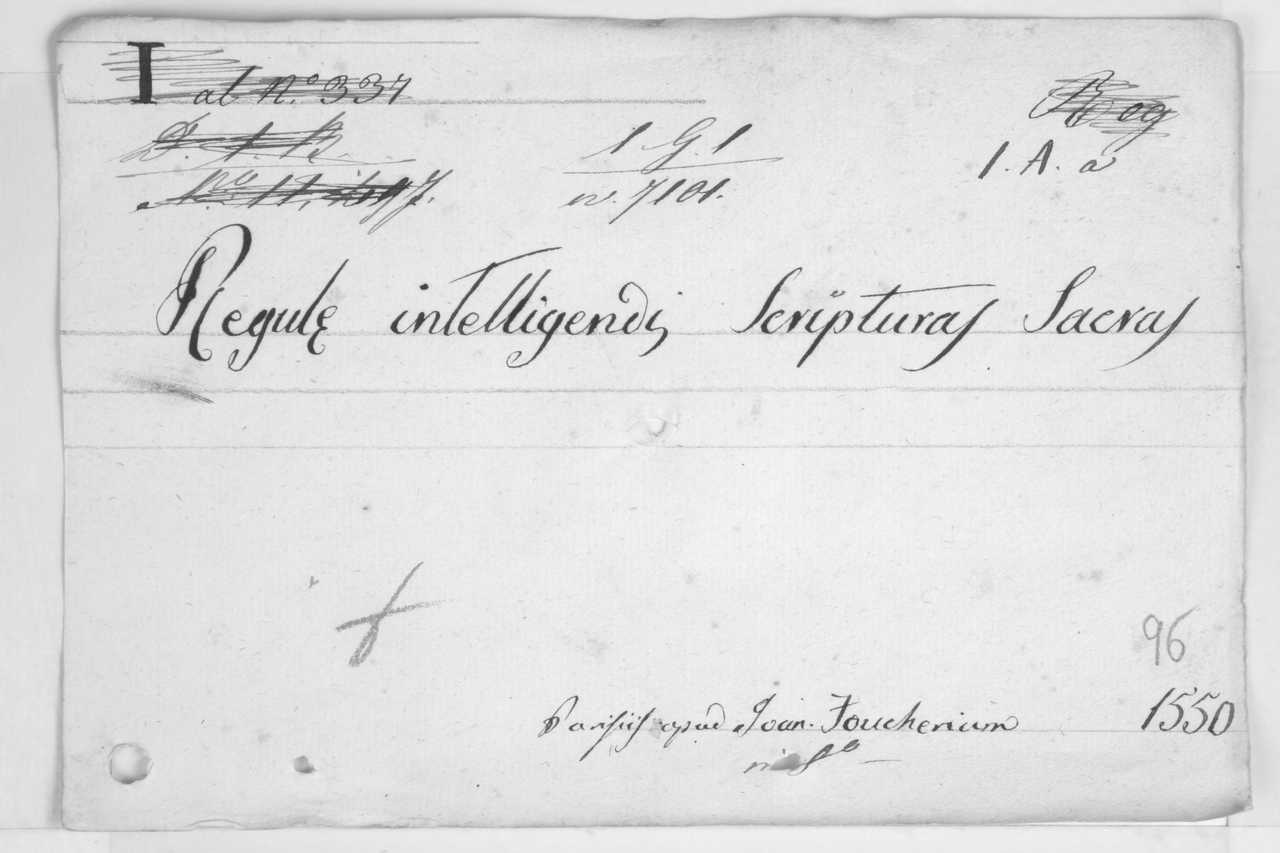 I al N.o 334
1. G. 1
n. 7101.
1. A. a
Regulę intelligendi Scripturas Sacras
96
Parisiis apud Joan. Foucherium 1550
in 8o